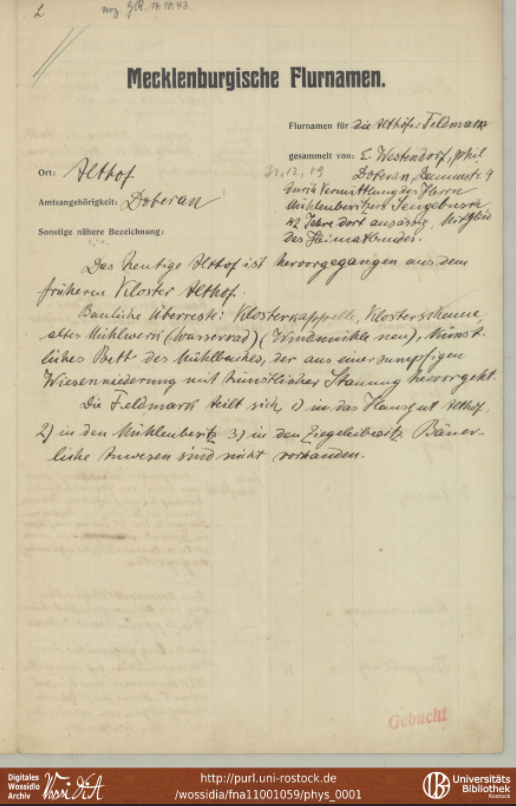 2.
Mecklenburgische Flurnamen.
Flurnamen für die Althöfer Feldmark
gesammelt von: E. Westendorf, phil
Ort: Althof
30. 12. 09
Doberan, Dammstr. 4
durch Vermittlung des Herrn
Amtsangehörigkeit: Doberan
Mühlenbesitzers Sengebusch,
42 Jahre dort ansässig, Mitglied
Sonstige nähere Bezeichnung:
des Heimatbundes.
Das heutige Althof ist hervorgegangen aus dem
früheren Kloster Althof.
Bauliche Überreste: Klosterkappelle, Klosterscheune,
altes Mühlwerk (Wasserrad) (Windmühle neu), Künst-
liches Bett des Mühlbaches, der aus einer sumpfigen
Wiesenniederung mit künstlicher Stauung hervorgeht.
Die Feldmark teilt sich, 1) in das Hausgut Althof,
2) in den Mühlenbesitz 3) in den Ziegeleibesitz Bäuer-
liche Anwesen sind nicht vorhanden.
Gebucht
Digitales
Wossidlo
Archiv
WossiDiA
http://purl.uni-rostock.de
/wossidia/fna11001059/phys_0001
Universitäts
Bibliothek
Rostock